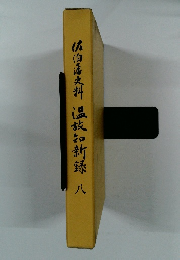 佐伯藩史料 温故知新録 八